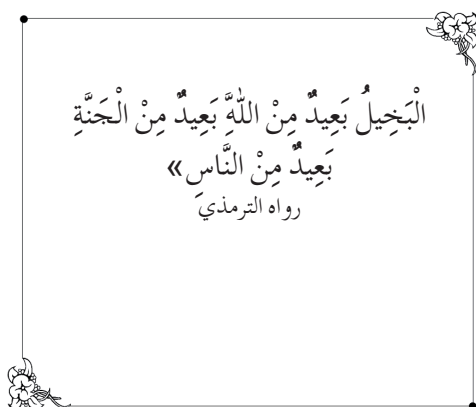 الْبَخِيلُ بَعِيدٌ مِنْ اللهَِّ بَعِيدٌ مِنْ الْجَنَّةِ
بَعِيدٌ مِنْ النَّاسِ»
رواه الترمذيِ